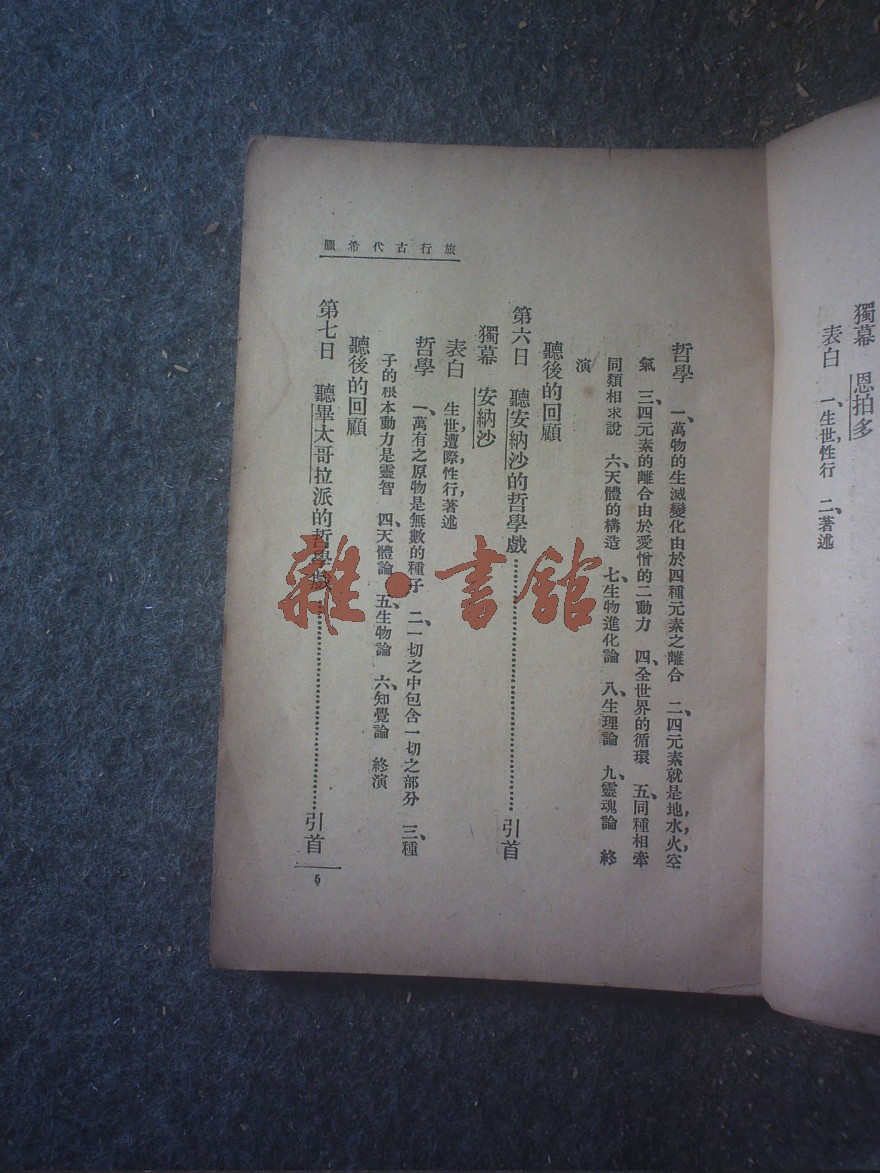 獨幕　恩拍多
表白　一、生世，性行　二、著述
旅行古代希臘
哲學　一、萬物的生滅變化由於四種元素之離合　二、四元素就是地，水，火，空
氣　三、四元素的離合由於愛憎的二動力　四、全世界的循環　五、同種相牽
同類相求說　六、天體的構造　七、生物進化論　八、生理論　九、靈魂論　終
演
聽後的回顧
第六日　聽安納沙的哲學戲……………………引首
獨幕　安納沙
表白　生世，遭際，性行，著述
哲學　一、萬有之原物是無數的種子　二、一切之中包含一切之部分　三、種
子的根本動力是靈智　四、天體論　五、生物論　六、知覺論　終演
聽後的回顧
第七日　聽畢太哥拉派的哲學戲……………………引首
5
雜·書館